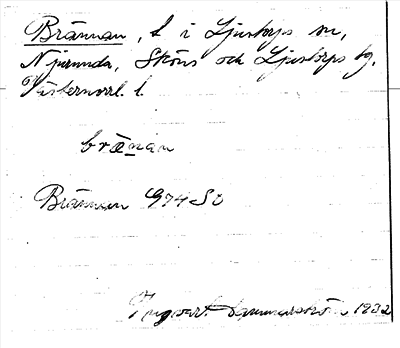 Brännan, t i Ljustorps sn,
Njurunda, Sköns och Ljustorps tg.
Västernorrl. l.
brä̀nan
Brännan G74 Sö
Ingvart 1932